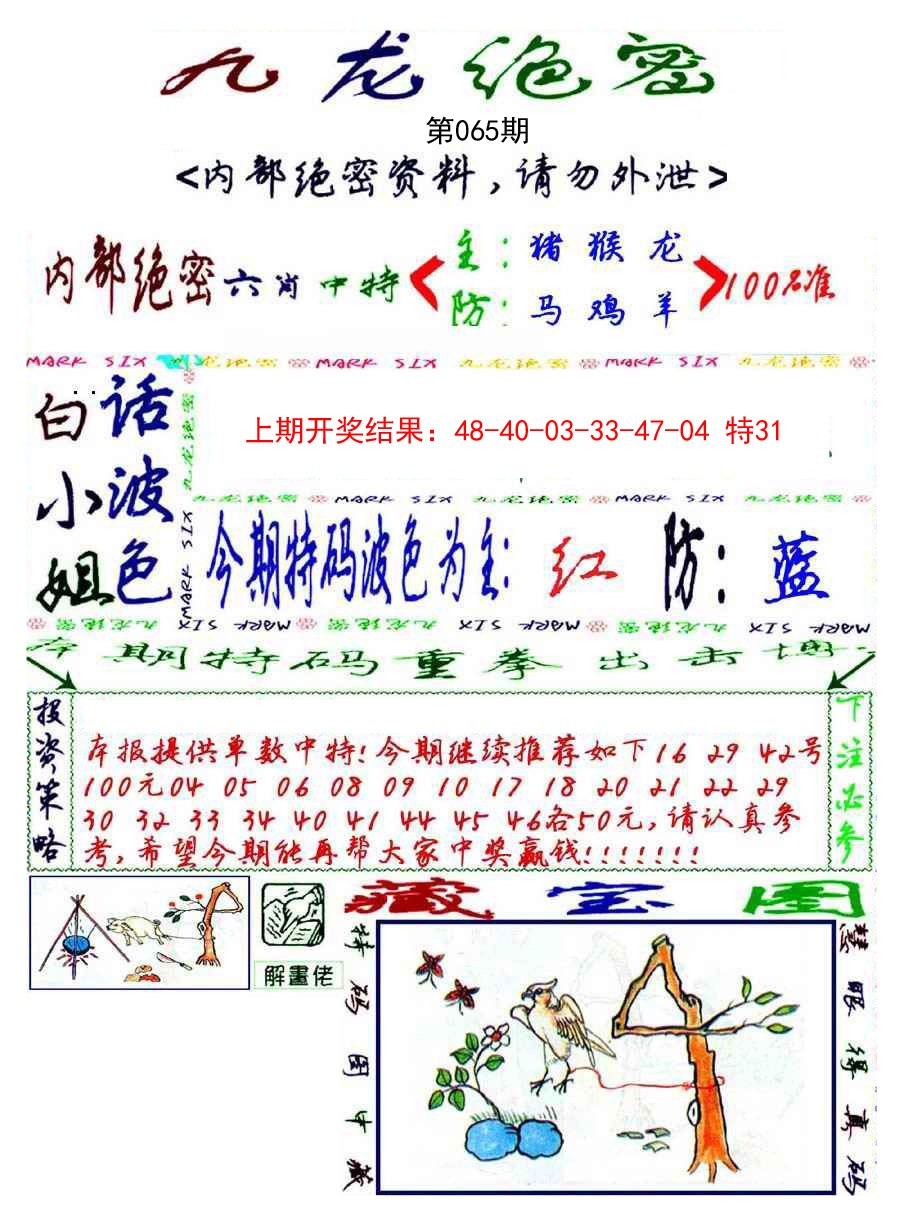 九龙绝密
第065期
<内部绝密资料,请勿外泄>
内部绝密六肖中特
主:猪猴龙
防:马鸡羊
100%准
MARK SIX 九龙绝密 MARK SIX 九龙绝密 MARK SIX 九龙绝密
白小姐
话波色
九龙绝密 MARK SIX
上期开奖结果：48-40-03-33-47-04 特31
九龙绝密 MARK SIX 九龙绝密 MARK SIX 九龙绝密
今期特码波色为主:红 防:蓝
九龙绝密 MARK SIX 九龙绝密 MARK SIX 九龙绝密 MARK SIX
本期特码重拳出击
投资策略
本报提供单数中特!今期继续推荐如下16 29 42号
100元04 05 06 08 09 10 17 18 20 21 22 29
30 32 33 34 40 41 44 45 46各50元,请认真参
考,希望今期能再帮大家中奖赢钱!!!!!!!
下注必参
解畫佬
藏宝图
特码图中藏
慧眼得真码